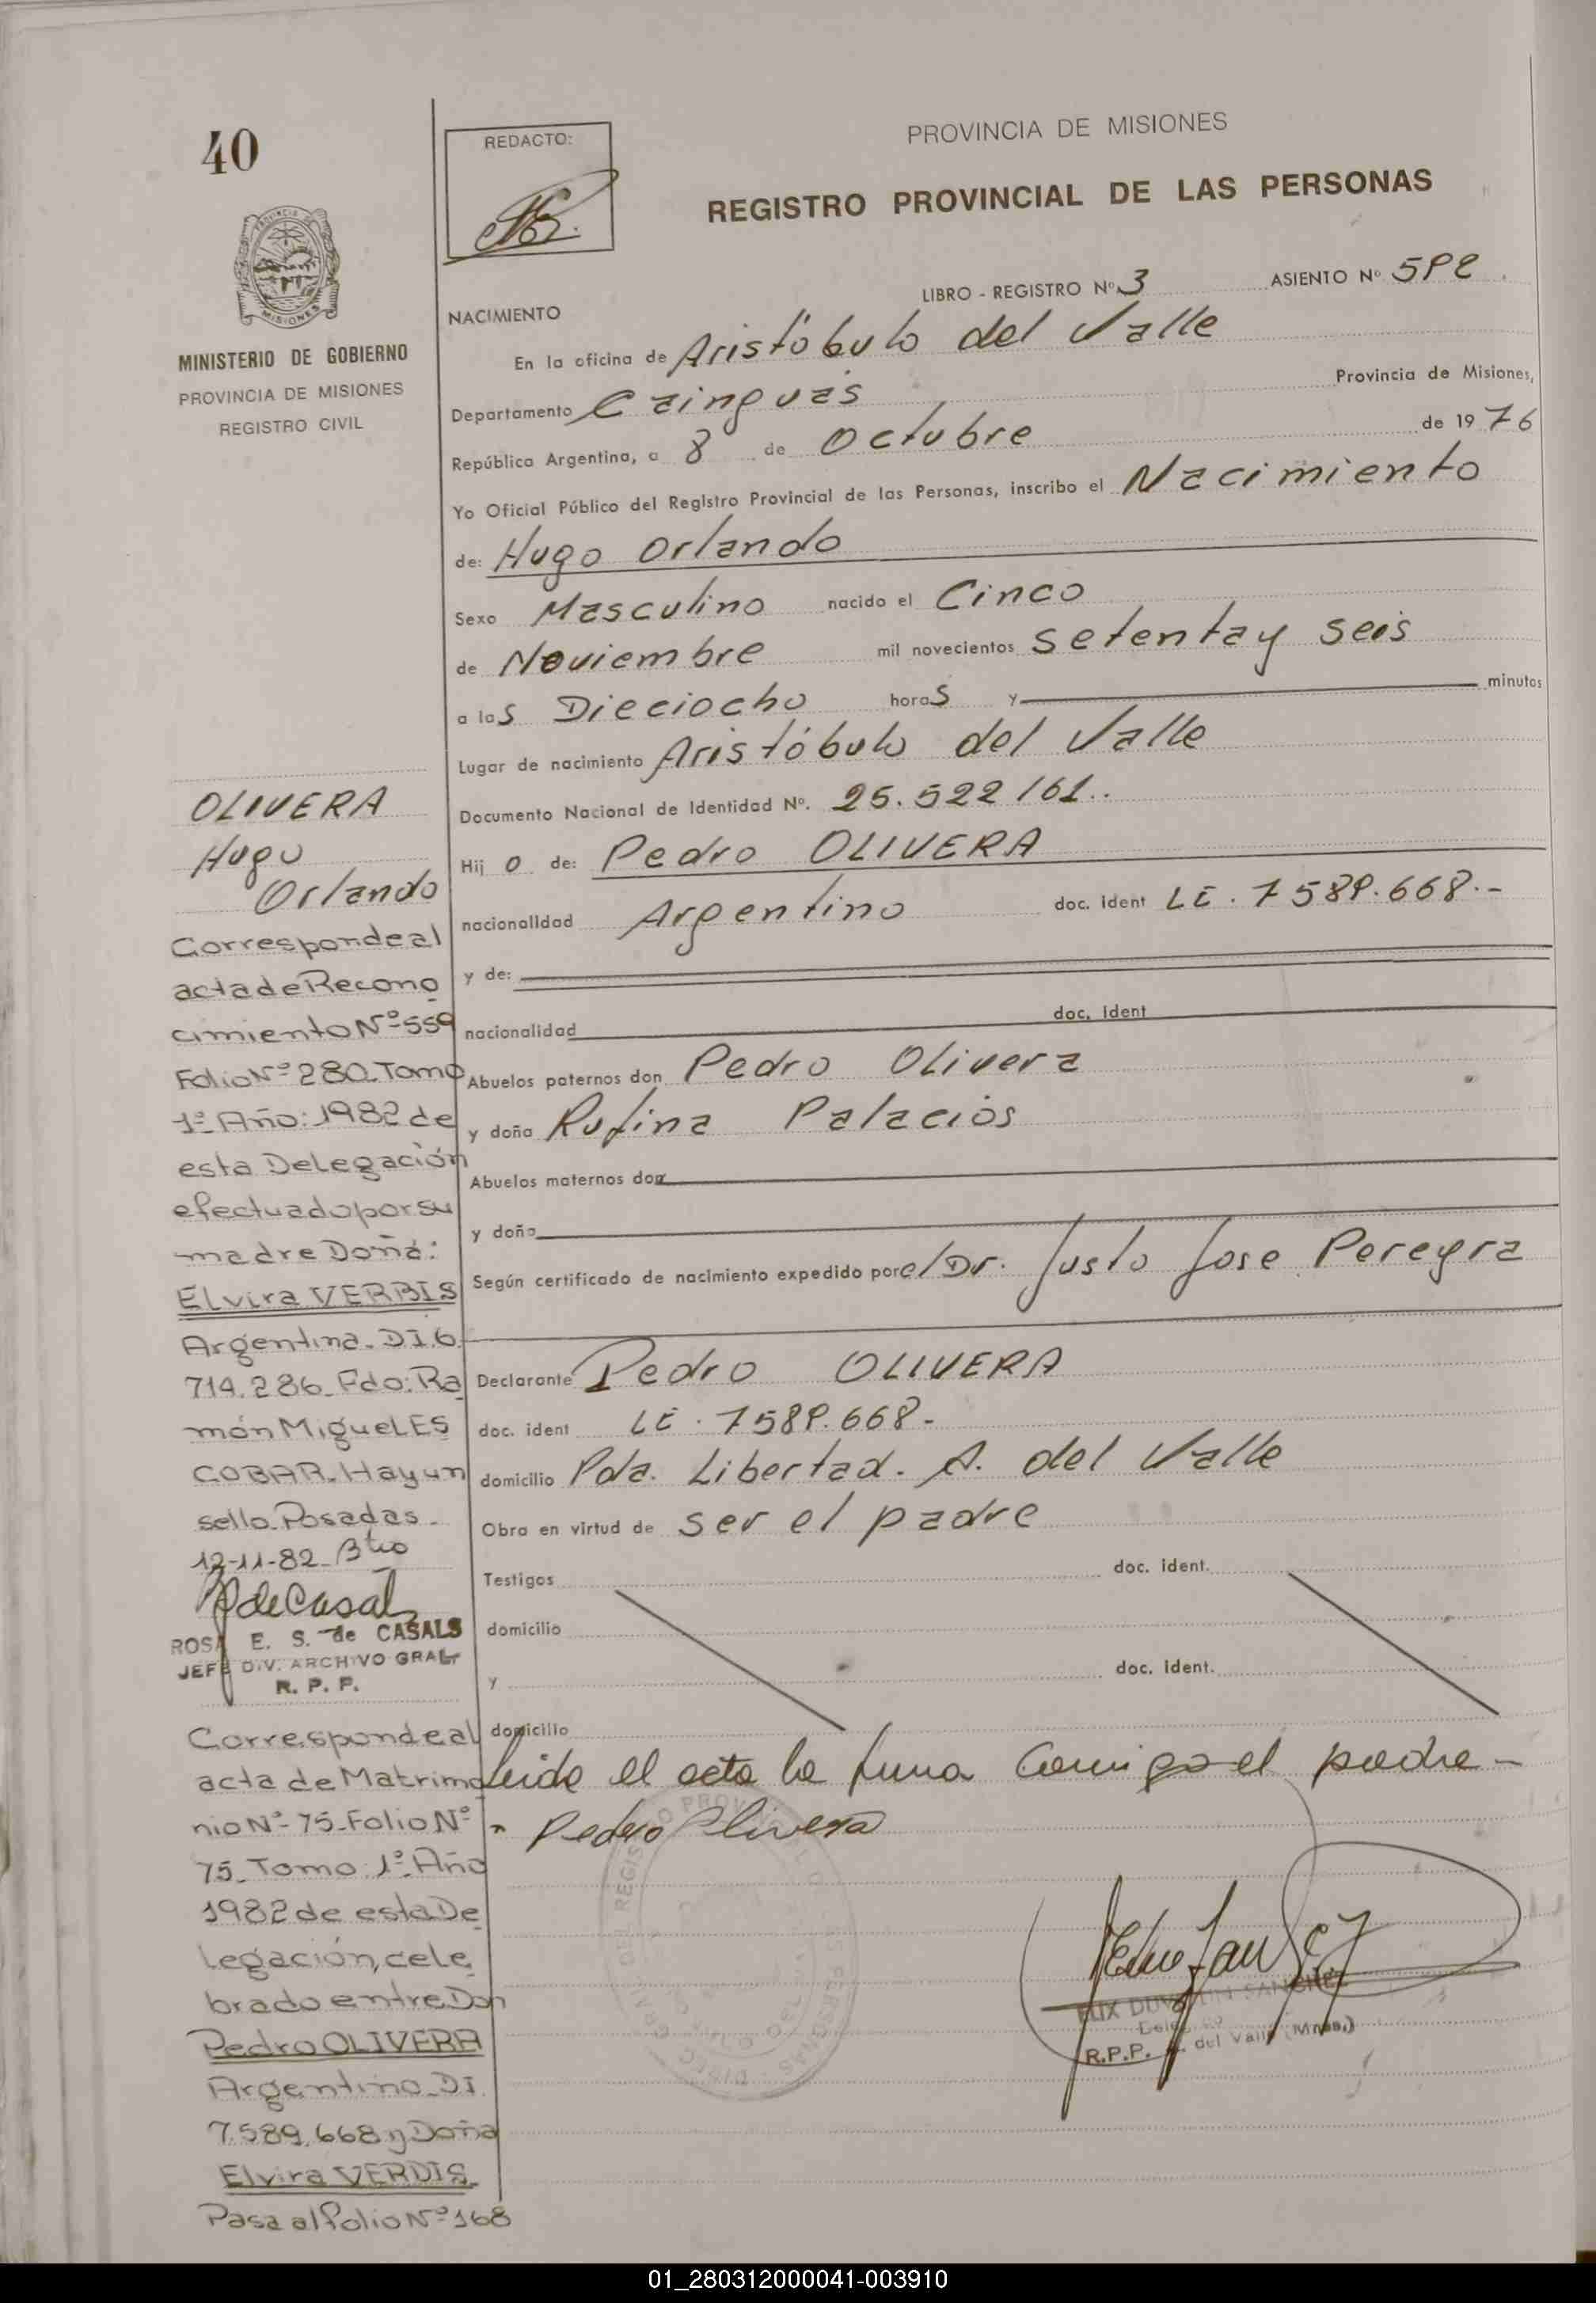 40
MINISTERIO DE GOBIERNO
PROVINCIA DE MISIONES
REGISTRO CIVIL
REDACTO:
PROVINCIA DE MISIONES
REGISTRO PROVINCIAL DE LAS PERSONAS
LIBRO - REGISTRO Nº 3 ASIENTO Nº 592
NACIMIENTO
En la oficina de Aristóbulo del Valle
Departamento Cainguás Provincia de Misiones,
República Argentina, a 8 de Octubre de 1976
Yo Oficial Público del Registro Provincial de las Personas, inscribo el Nacimiento
de: Hugo Orlando
Sexo Masculino nacido el Cinco
de Noviembre mil novecientos setenta y seis
a las Dieciocho horas y minutos
Lugar de nacimiento Aristóbulo del Valle
Documento Nacional de Identidad Nº. 25.522161..
Hijo de: Pedro OLIVERA
nacionalidad Argentino doc. ident LE. 7589.668.-
y de:
nacionalidad doc. ident
Abuelos paternos don Pedro Olivera
y doña Rufina Palacios
Abuelos maternos don
y doña
Según certificado de nacimiento expedido por el Dr. Justo Jose Pereyra
Declarante Pedro OLIVERA
doc. ident LE. 7589.668-
domicilio Pda. Libertad. A. del Valle
Obra en virtud de ser el padre
Testigos doc. ident.
domicilio
y doc. ident.
domicilio
Leida el acta la firma Comigo el padre-
Pedro Olivera
SANCHEZ
R.P.P. A. del Valle (Mnes.)
OLIVERA
Hugo
Orlando
Corresponde al
acta de Recono
cimiento Nº 559
Folio Nº 280_Tomo
1º Año: 1982 de
esta Delegación
efectuado por su
madre Doña:
Elvira VERBIS
Argentina_D.I.6.
714.286_Fdo: Ra
món Miguel ES
COBAR_Hay un
sello_Posadas_
12-11-82_
RdeCasals
ROSA E. S. de CASALS
JEFE DIV. ARCHIVO GRAL
R. P. P.
Corresponde al
acta de Matrimo
nio Nº 75_Folio Nº
75_Tomo: 1º Año
1982 de esta De
legación, cele
brado entre Don
Pedro OLIVERA
Argentino_DI.
7.589.668 y Doña
Elvira VERDIS_
Pasa al folio Nº 168
01_280312000041-003910